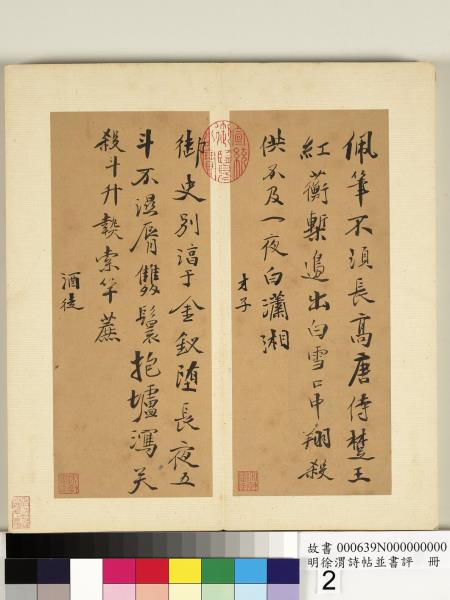 佩筆不須長高唐侍楚王
紅蘅塹邉出白雪口中翔殺
供不及一夜白瀟湘
才子
御史別淳于金釵墮長夜五
斗不濕脣雙鬟抱壚瀉笑
殺斗升鷔索笨蔗
酒徒
故書 000639N000000000
明徐渭詩帖並書評 冊
2